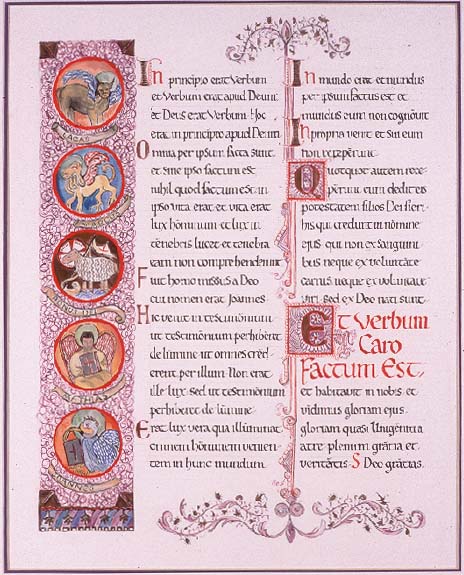 In principio erat Verbum
et Verbum erat apud Deum
et Deus erat Verbum Hoc
erat in principio apud Deum
Omnia per ipsum facta sunt
et sine ipso factum est
nihil quod factum est in
ipso vita erat et vita erat
lux hóminum et lux in
ténebris lucet et tenebræ
eam non comprehenderunt
Fuit homo missus a Deo
cui nomen erat Joannes
Hic venit in testimónium
ut testimónium perhibéret
de lúmine ut omnes créd-
erent per illum Non erat
ille lux sed ut testimónium
perhibéret de lúmine
Erat lux vera quæ illúminat
omnem hóminem venien-
tem in hunc mundum
In mundo erat et mundus
per ipsum factus est et
mundus eum non cognóvit
In propria venit et sui eum
non recepérunt
Quotquot autem rece-
pérunt eum dedit eis
potestatem filios Dei fíeri
his qui credunt in nómine
ejus qui non ex sanguíni-
bus neque ex voluntate
carnis neque ex voluntate
viri sed ex Deo nati sunt
Et Verbum
Caro
Factum Est
et habitavit in nobis et
vídimus gloriam ejus
gloriam quasi Unigeniti a
Patre plenum grátiæ et
veritátis S Deo grátias.
LUCAS
AGNUS DEI
MATHIAS
IOANNES